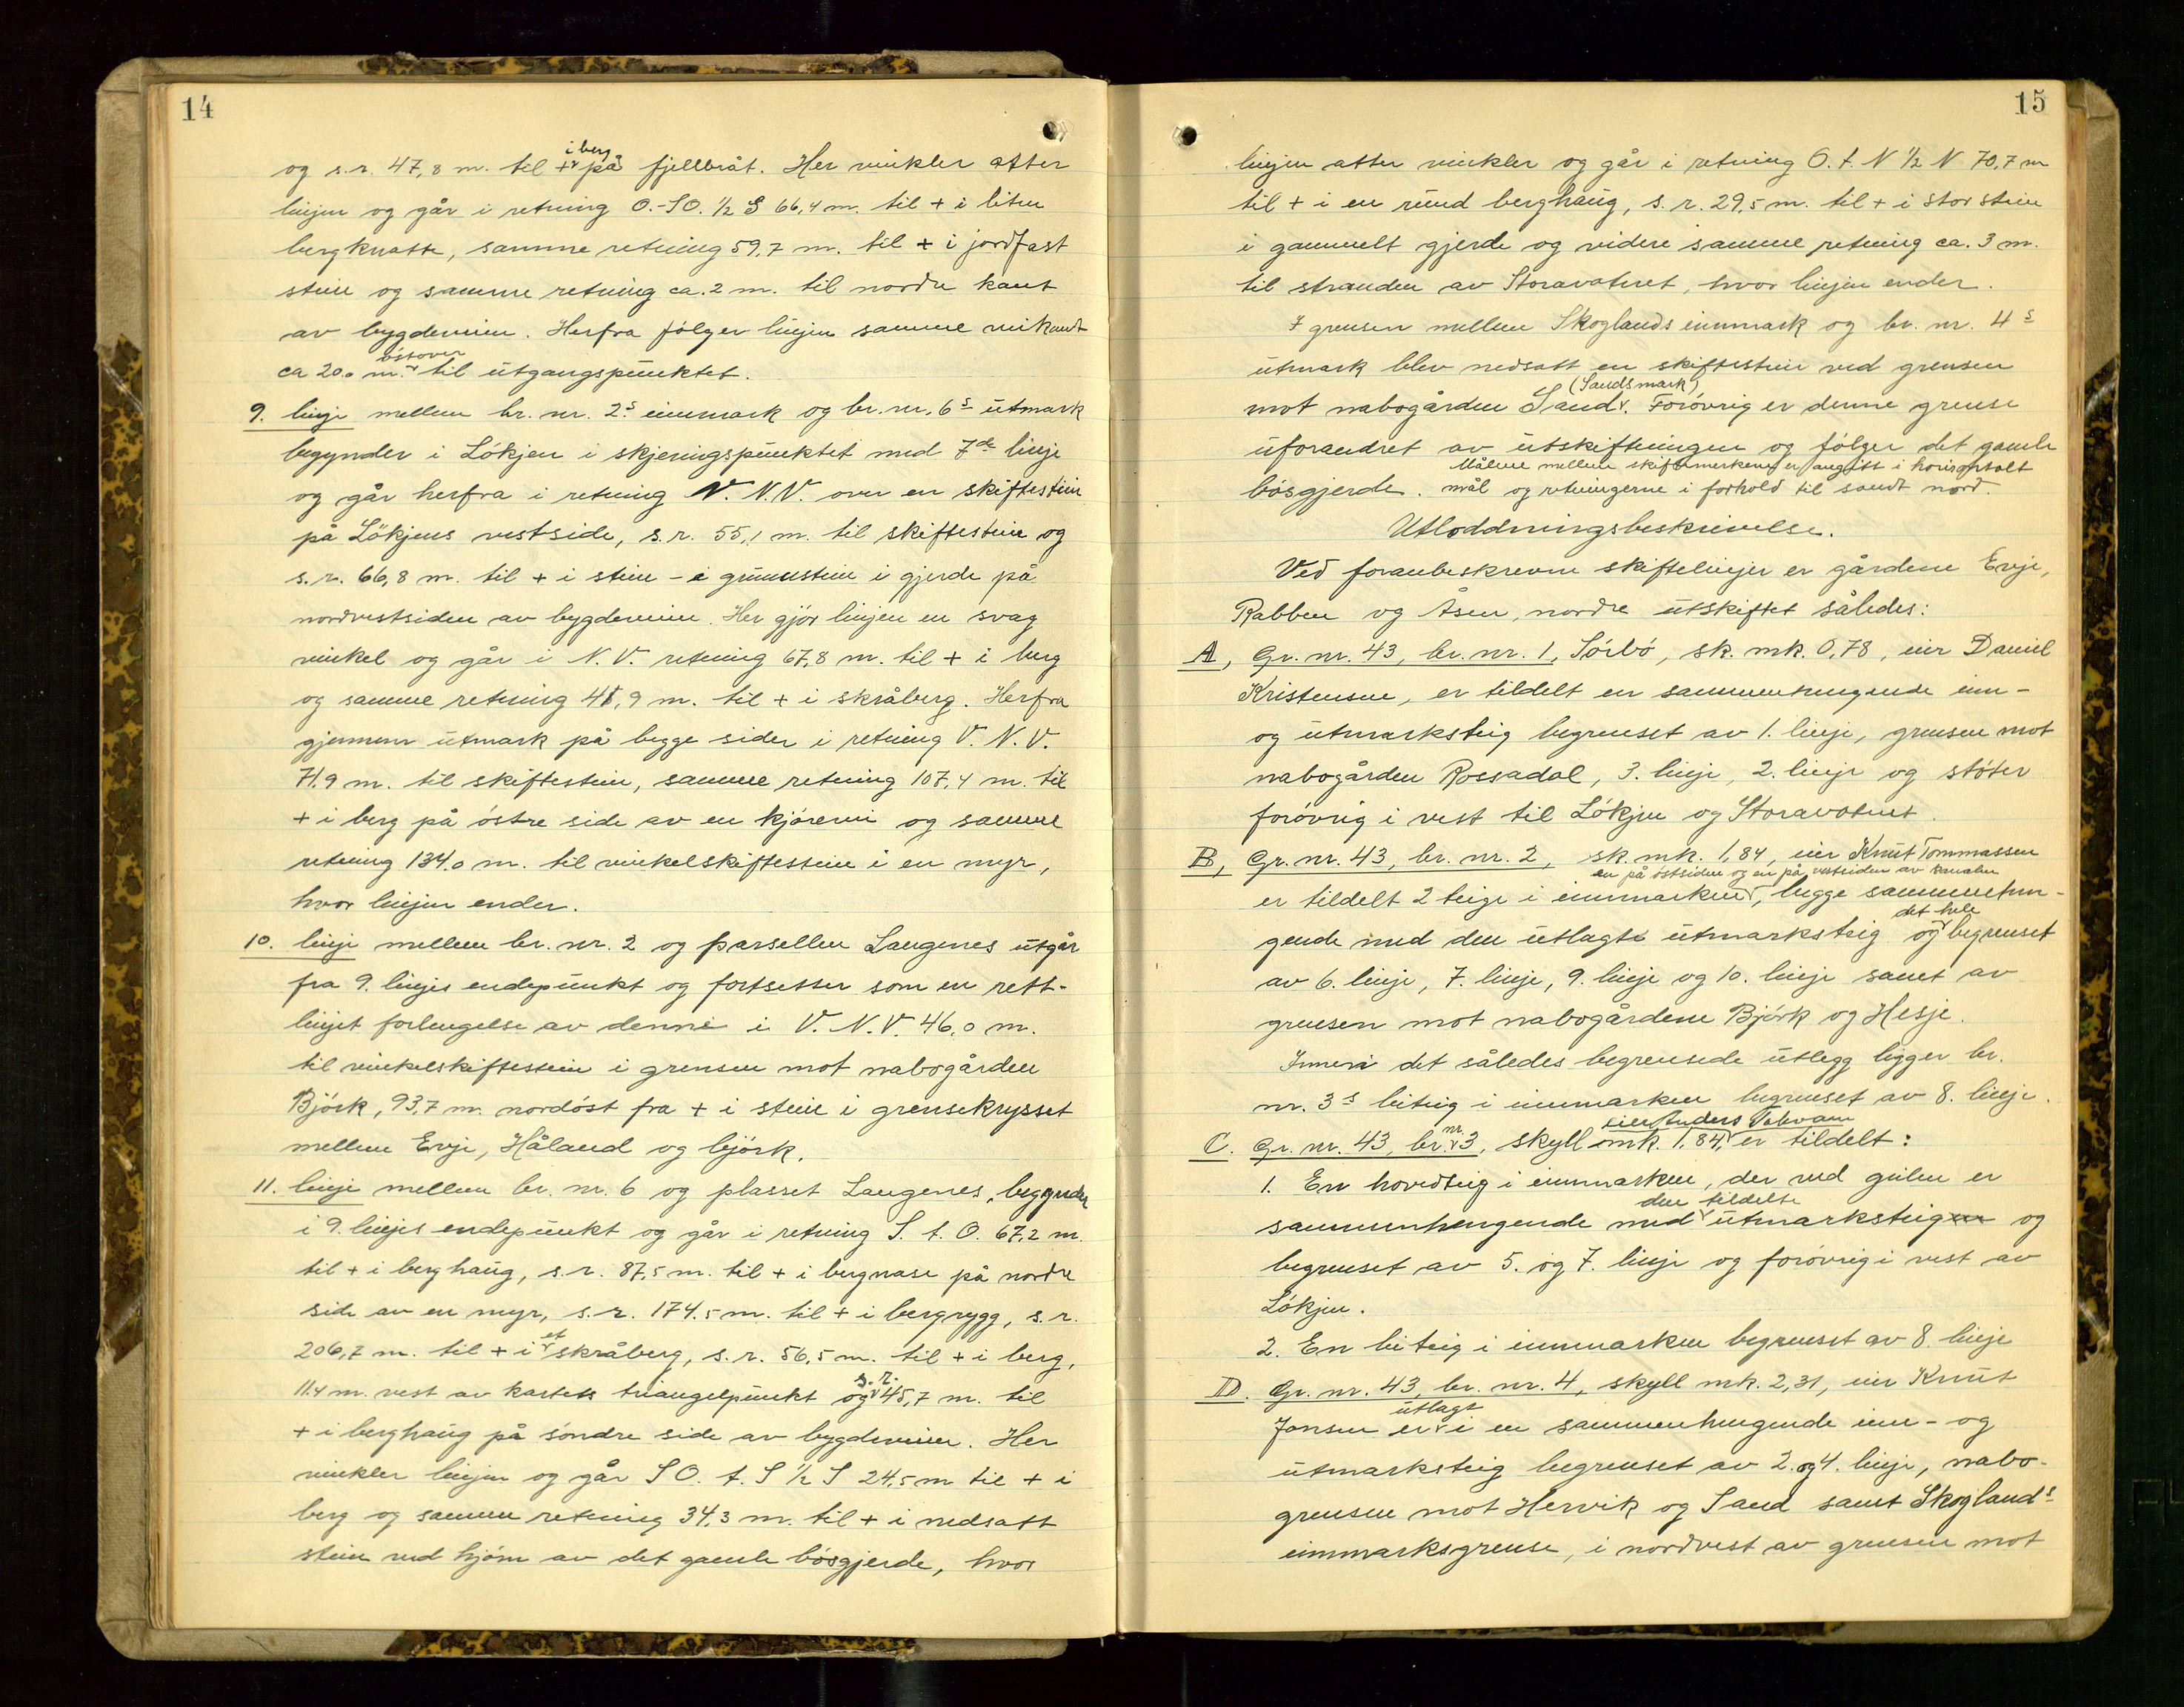 14
og s.r. 47,8 m. til + i berg på fjellbråt. Her vinkler atter
linjen og går i retning O.-SO. ½ S 66,4 m. til + i liten
bergknatte, samme retning 59,7 m. til + i jordfast
stein og samme retning ca. 2 m. til nordre kant
av bygdeveien. Herfra følger linjen samme veikant
ca 20,0 m. østover til utgangspunktet.
9. linje mellem br. nr. 2s innmark og br. nr. 6s utmark
begynder i Løkjen i skjeringspunktet med 7de linje
og går herfra i retning V. N.V. over en skiftestein
på Løkjens vestside, s.r. 55,1 m. til skiftestein og
s.r. 66,8 m. til + i stein - i grunnstein i gjerde på
nordvestsiden av bygdeveien. Her gjør linjen en svag
vinkel og går i N.V. retning 67,8 m. til + i berg
og samme retning 41,9 m. til + i skråberg. Herfra
gjennem utmark på begge sider i retning V. N.V.
71,9 m. til skiftestein, samme retning 107,4 m. til
+ i berg på østre side av en kjørevei og samme
retning 134,0 m. til vinkelskiftestein i en myr,
hvor linjen ender.
10. linje mellem br. nr. 2 og parsellen Langenes utgår
fra 9. linjes endepunkt og fortsetter som en rett-
linjet forlengelse av denne i V. N.V. 46,0 m.
til vinkelskiftestein i grensen mot nabogården
Bjørk, 93,7 m. nordøst fra + i stein i grensekrysset
mellem Evje, Håland og Bjørk.
11. linje mellem br. nr. 6 og plasset Langenes, begynder
i 9. linjes endepunkt og går i retning S. t. O. 67,2 m.
til + i berghaug, s.r. 87,5 m. til + i bergnase på nordre
side av en myr, s.r. 174,5 m. til + i bergrygg, s.r.
206,7 m. til + i et skråberg, s.r. 56,5 m. til + i berg,
11,4 m. vest av kartets triangelpunkt og s.r. 45,7 m. til
+ i berghaug på søndre side av bygdeveien. Her
vinkler linjen og går S O. t. S ½ S 24,5 m til + i
berg og samme retning 34,3 m. til + i nedsatt
stein ved hjørn av det gamle bøsgjerde, hvor
15
linjen atter vinkler og går i retning O. t. N ½ N 70,7 m
til + i en rund berghaug, s.r. 29,5 m. til + i stor stein
i gammelt gjerde og videre samme retning ca. 3 m.
til stranden av Storavatnet, hvor linjen ender.
I grensen mellem Skoglands innmark og br. nr. 4s
utmark blev nedsatt en skiftestein ved grensen
mot nabogården Sand (Sandsmark). Forøvrig er denne grense
uforandret av utskiftningen og følger det gamle
bøsgjerde. Målene mellem skiftemerkene er angitt i horisontalt
mål og retningerne i forhold til sandt nord.
Utloddningsbeskrivelse.
Ved foranbeskrevne skiftelinjer er gårdene Evje,
Rabben og Åsen, nordre utskiftet således:
A, Gr. nr. 43, br. nr. 1, Sørbø, sk. mk. 0,78, eier Daniel
Kristensen, er tildelt en sammenhengende inn-
og utmarksteig begrenset av 1. linje, grensen mot
nabogården Rossadal, 3. linje, 2. linje og støter
forøvrig i vest til Løkjen og Storavatnet.
B, Gr. nr. 43, br. nr. 2, sk. mk. 1,84, eier Knut Tommassen
er tildelt 2 teige i innmarken, en på østsiden og en på vestsiden av kanalen begge sammenhen-
gende med den utlagte utmarksteig og det hele begrenset
av 6. linje, 7. linje, 9. linje og 10. linje samt av
grensen mot nabogårdene Bjørk og Hesje.
Inneni det således begrensede utlegg ligger br.
nr. 3s biteig i innmarken begrenset av 8. linje.
C. Gr. nr. 43, br. nr. 3, skyll mk. 1,84, eier Anders er tildelt:
1. En hovedteig i innmarken, der ved geilen er
sammenhengende med den tildelte utmarksteig og
begrenset av 5. og 7. linje og forøvrig i vest av
Løkjen.
2. En biteig i innmarken begrenset av 8. linje
D. Gr. nr. 43, br. nr. 4, skyll mk. 2,31, eier Knut
Jonsen er utlagt i en sammenhengende inn- og
utmarksteig begrenset av 2. og 4. linje, nabo-
grensen mot Hervik og Sand samt Skoglands
innmarksgrense, i nordvest av grensen mot